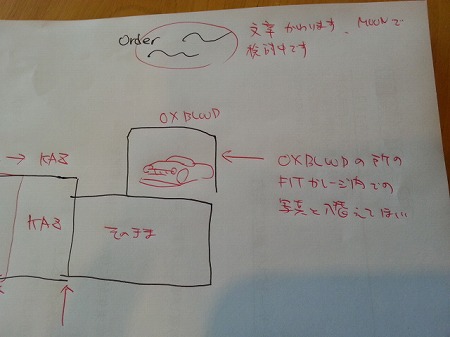 Order
文章 かわります。MOONで
検討中です
OXBLOOD
→ KAZ
KAZ
そのまま
← OXBLOODの所の
FITガレージ内での
写真と入替えてほしい